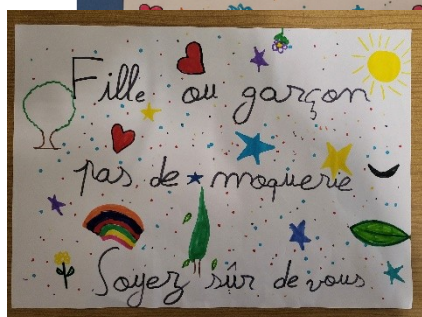 Fille ou garçon
pas de moquerie
Soyez sûr de vous